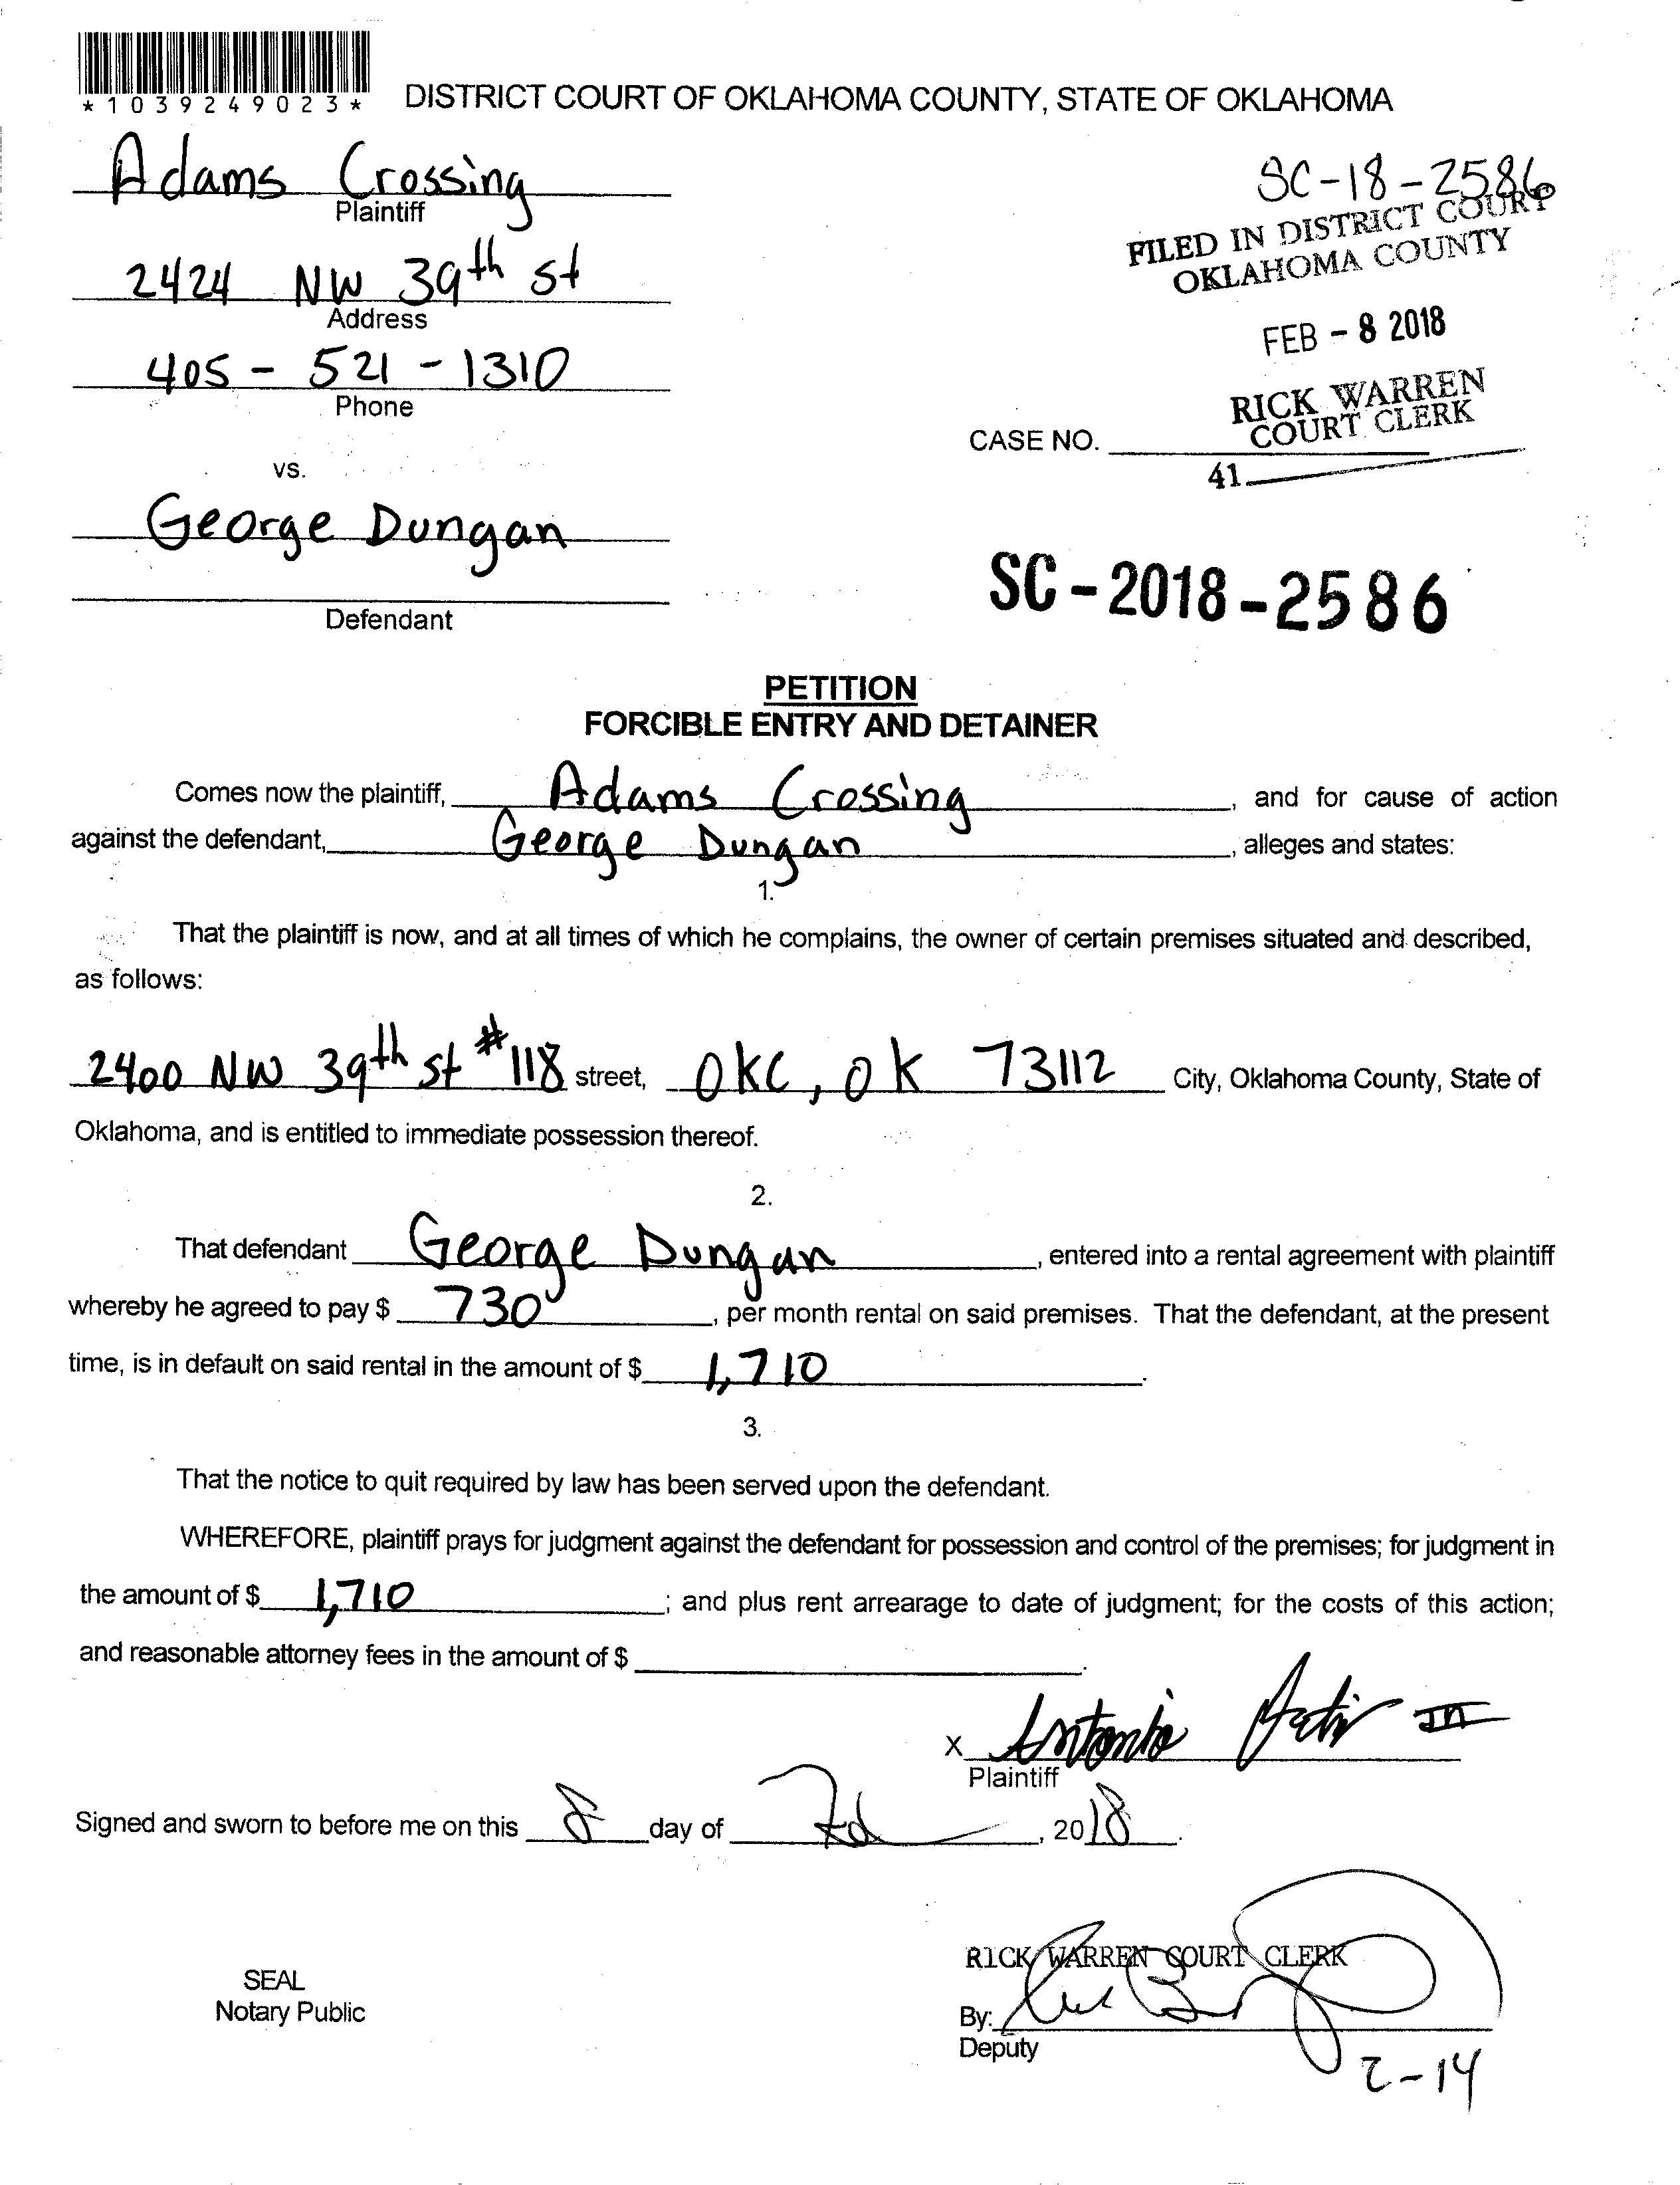 *1039249023*
DISTRICT COURT OF OKLAHOMA COUNTY, STATE OF OKLAHOMA
Adams Crossing
Plaintiff
SC-18-2586
FILED IN DISTRICT COURT
OKLAHOMA COUNTY
2424 NW 39th St
Address
FEB - 8 2018
405 - 521 - 1310
Phone
RICK WARREN
COURT CLERK
CASE NO.
41
vs.
George Dungan
Defendant
SC-2018-2586
PETITION
FORCIBLE ENTRY AND DETAINER
Comes now the plaintiff, Adams Crossing, and for cause of action
against the defendant, George Dungan, alleges and states:
1.
That the plaintiff is now, and at all times of which he complains, the owner of certain premises situated and described,
as follows:
2400 NW 39th st #118 street, OKC, OK 73112 City, Oklahoma County, State of
Oklahoma, and is entitled to immediate possession thereof.
2.
That defendant George Dungan, entered into a rental agreement with plaintiff
whereby he agreed to pay $ 730, per month rental on said premises. That the defendant, at the present
time, is in default on said rental in the amount of $ 1,710.
3.
That the notice to quit required by law has been served upon the defendant.
WHEREFORE, plaintiff prays for judgment against the defendant for possession and control of the premises; for judgment in
the amount of $ 1,710; and plus rent arrearage to date of judgment; for the costs of this action;
and reasonable attorney fees in the amount of $ .
X Antonio III
Plaintiff
Signed and sworn to before me on this 8 day of Feb, 2018.
RICK WARREN COURT CLERK
SEAL
Notary Public
By:
Deputy
2-14